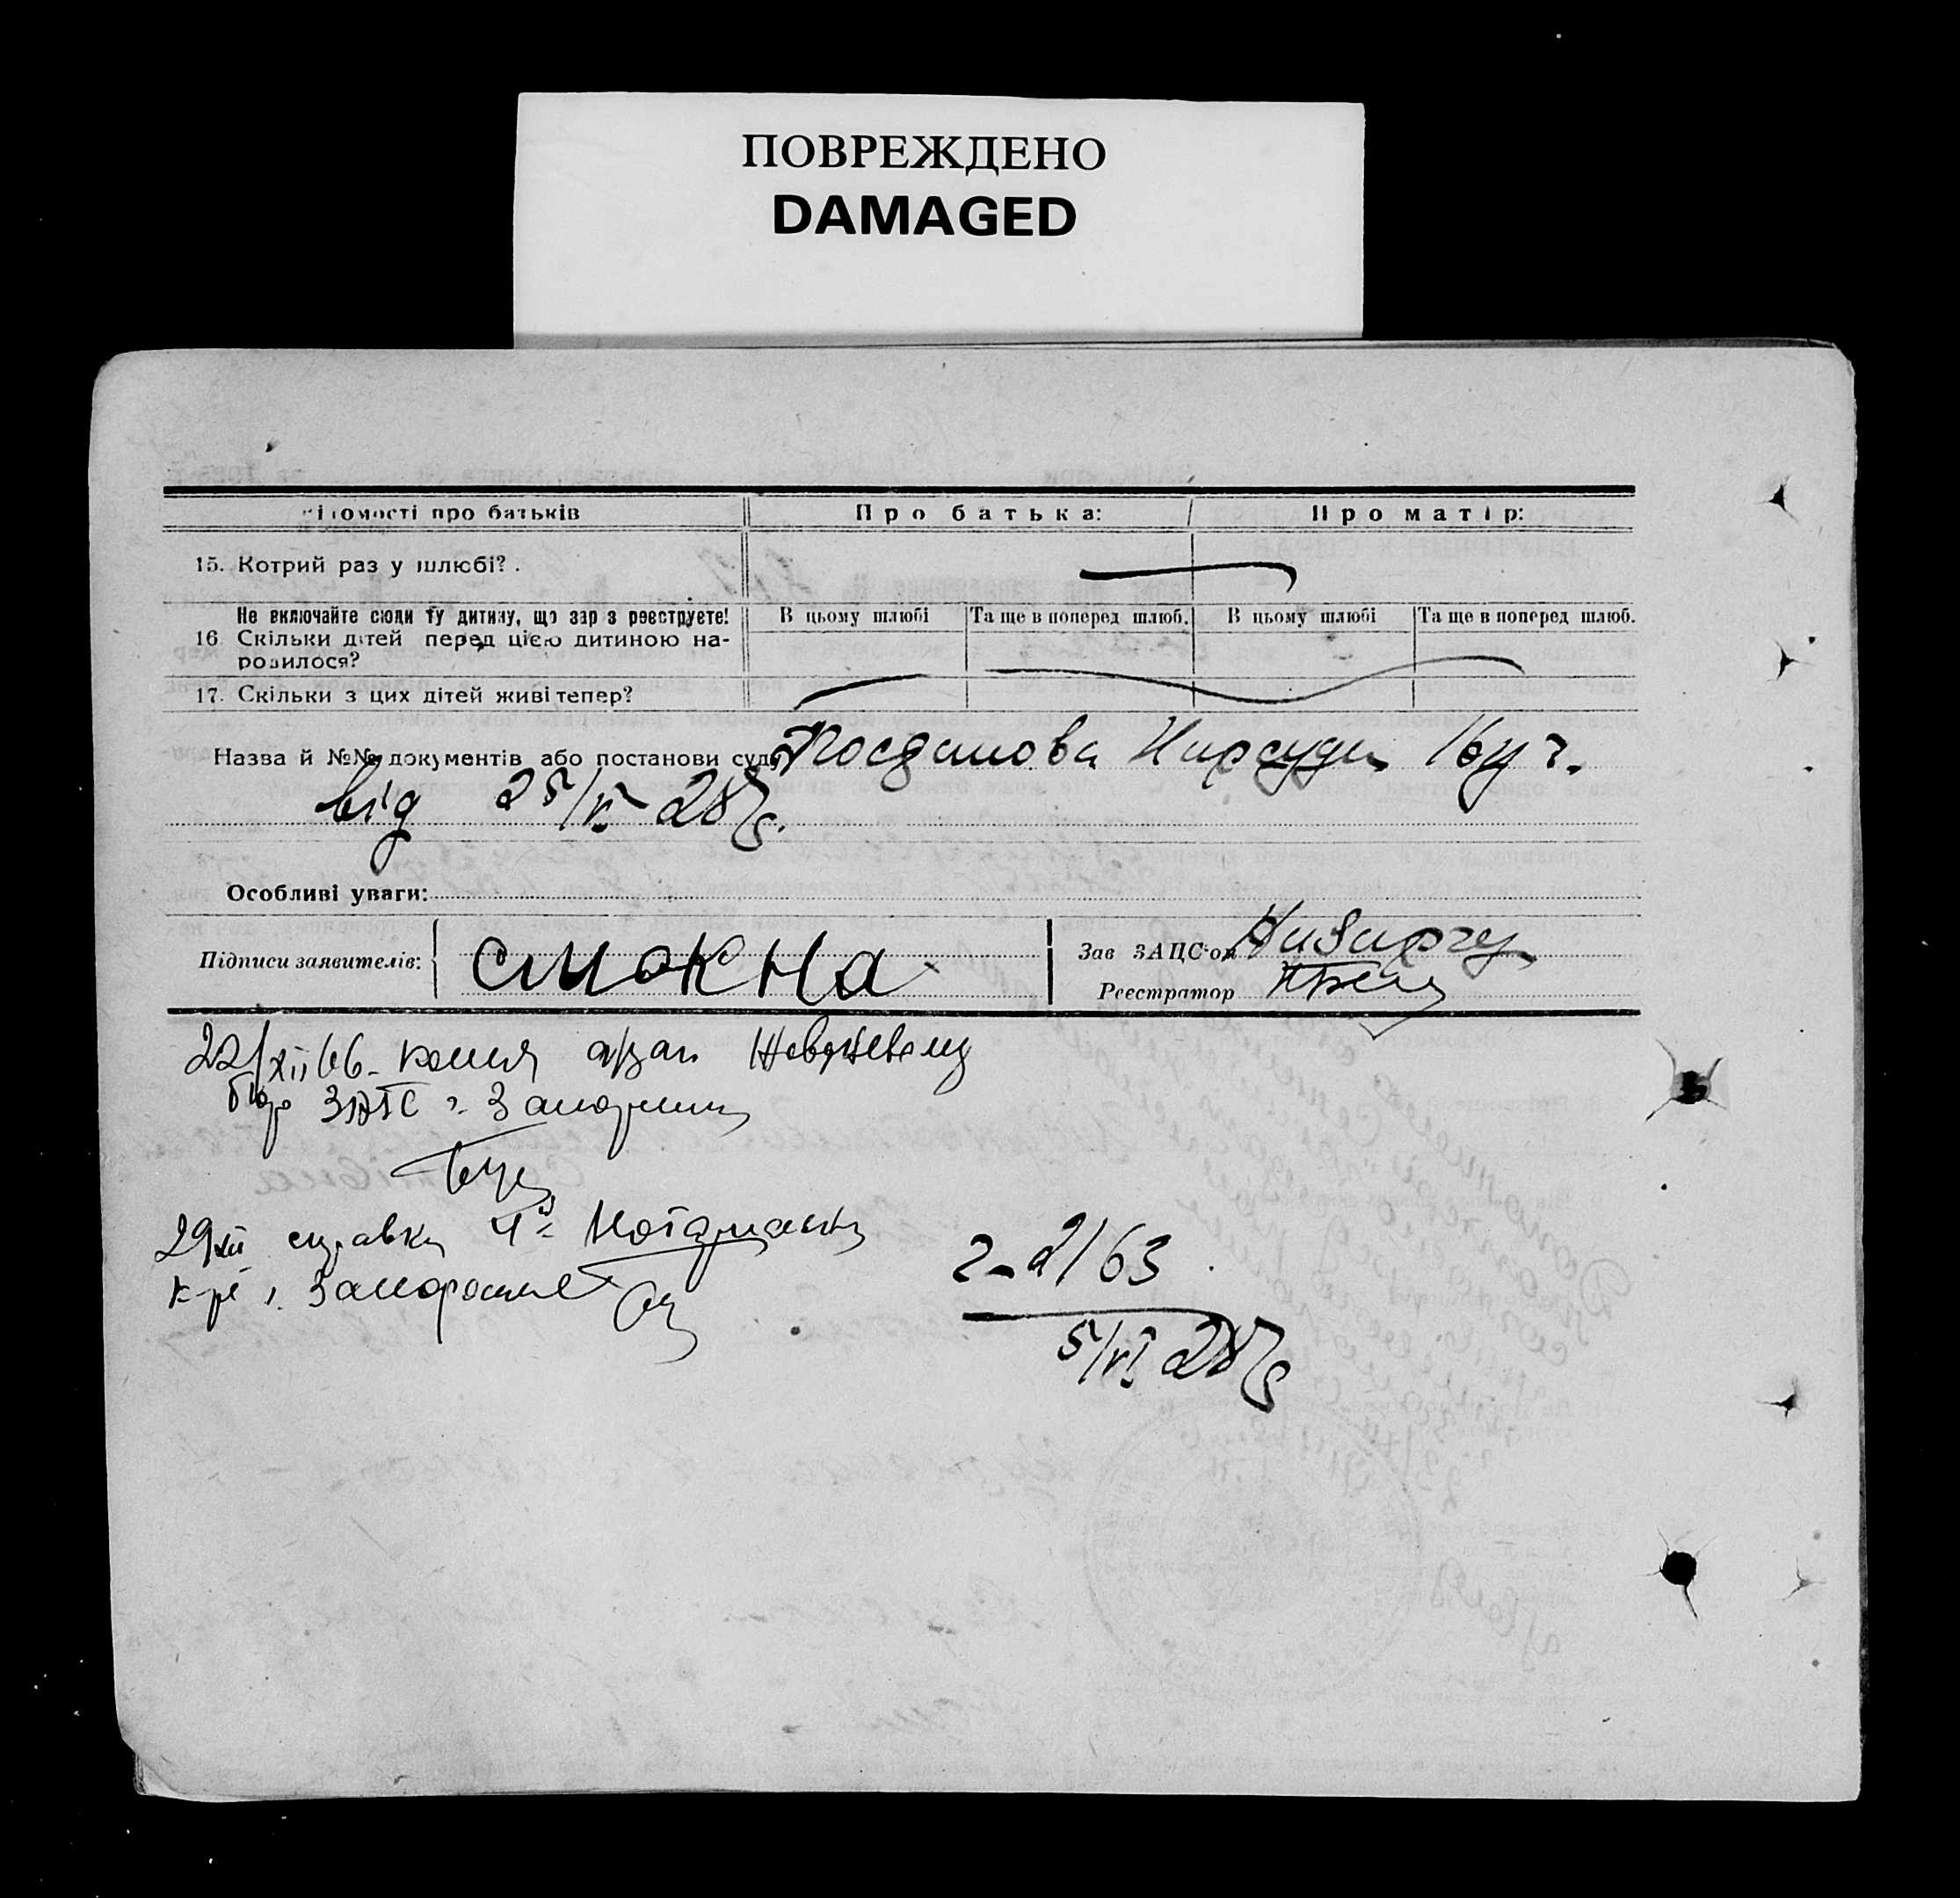 ПОВРЕЖДЕНО
DAMAGED
ідомості про батьків
Про батька:
Про матір:
15. Котрий раз у шлюбі?
Не включайте сюди ту дитину, що зараз реєструєте!
16. Скільки дітей перед цією дитиною на-
родилося?
В цьому шлюбі
Та ще в поперед шлюб.
В цьому шлюбі
Та ще в поперед шлюб.
17. Скільки з цих дітей живі тепер?
Назва й №№ документів або постанови суду Постанова Нарсуду 16
від 25/V 28 р.
Особливі уваги:
Підписи заявителів:
Смокна
Зав ЗАЦС'ом
Реєстратор
22/XII 66 копия
бюро ЗАГС г.
29/XII справка
г. Запорожье
2-2/63
5/VI 28 р